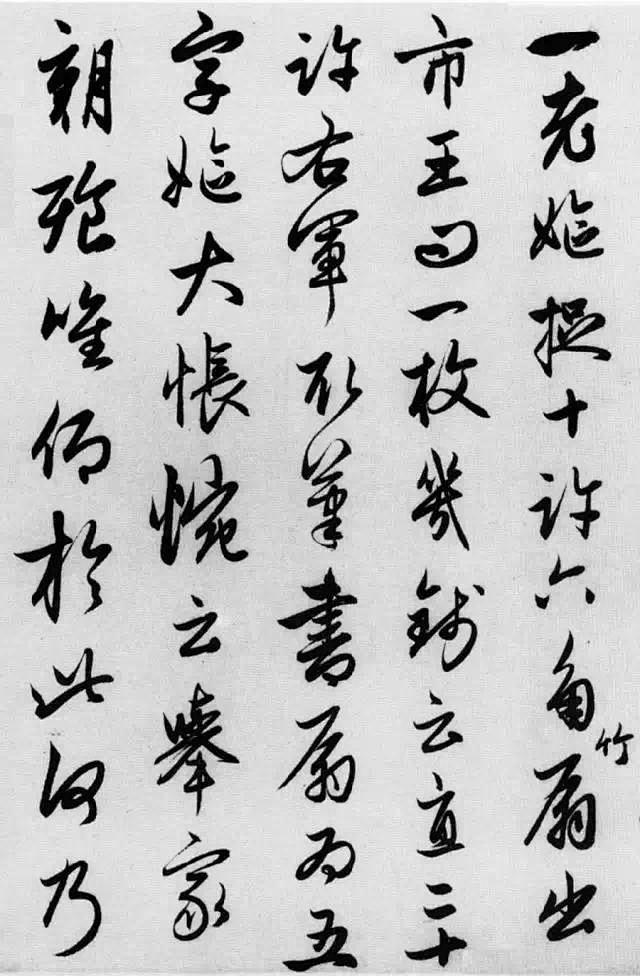 一老嫗捉十許六角竹扇出
市王問一枚幾錢云直二十
許右軍取筆書扇為五
字嫗大悵惋云舉家
朝飱唯仰於此何乃